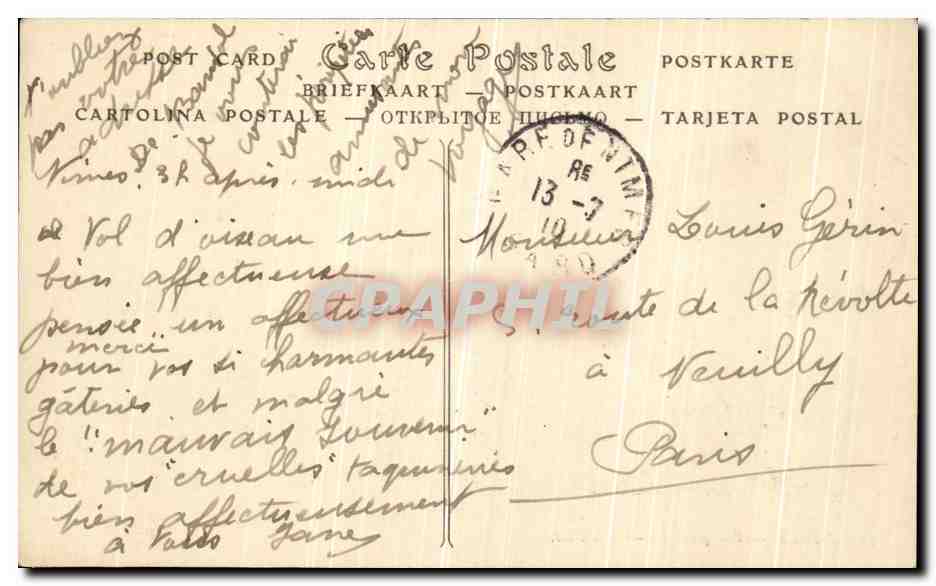 POST CARD Carte Postale POSTKARTE
BRIEFKAART — POSTKAART
CARTOLINA POSTALE — ОТКРЫТОЕ ПИСЬМО — TARJETA POSTAL
N'oubliez
pas votre
adresse
de
je
continuer
les
amusantes
de mon
voyage
Nimes. 3h après-midi
à Vol d'oiseau une
bien affectueuse
pensée, un affectueux
merci
pour vos si charmantes
gâteries et malgré
le "mauvais souvenir"
de vos "cruelles" taquineries
bien affectueusement
à vous Jane
GARE DE NIMES
Re
13 - 7
10
GARD
Monsieur Louis Gérin
5, route de la Révolte
à Neuilly
Paris
CPAPHIL